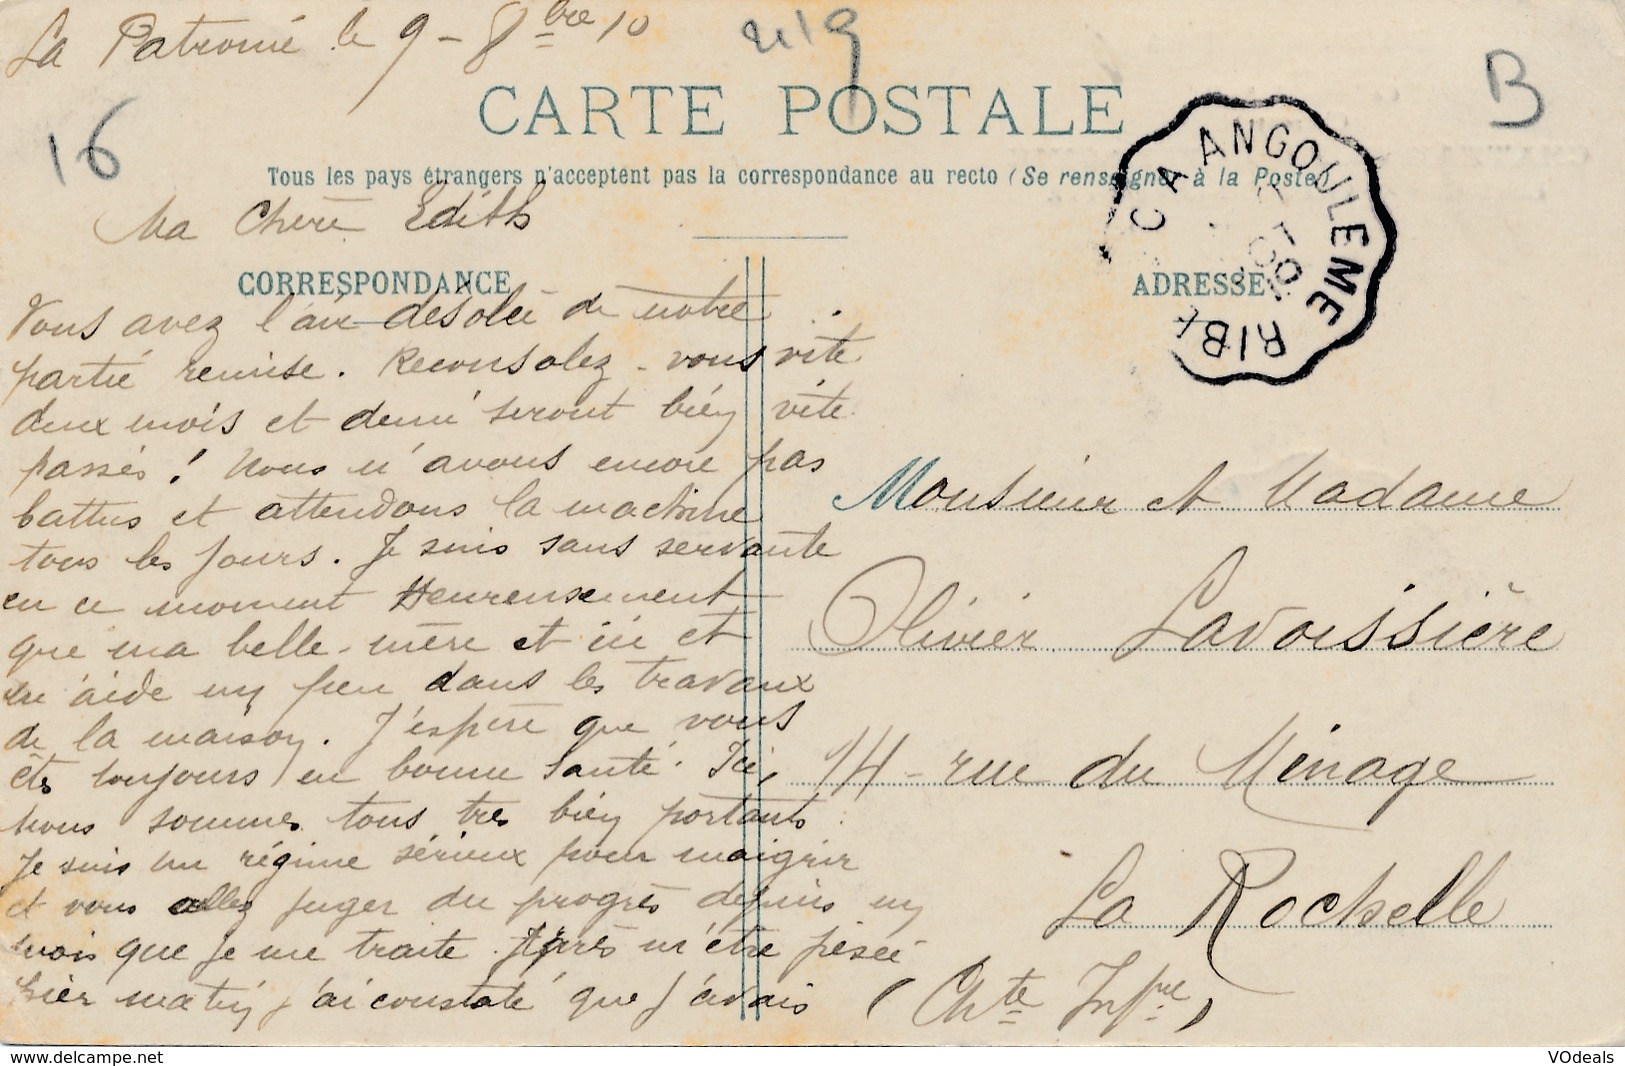 La Patronié le 9 - 8bre 10
219
B
16
CARTE POSTALE
Tous les pays étrangers n'acceptent pas la correspondance au recto (Se renseigner à la Poste)
ANGOULEME
RIB
Ma chère Edith
CORRESPONDANCE
ADRESSE
Vous avez l'air désolée de notre
partie remise. Reconsolez-vous vite
deux mois et demi seront bien vite
passés! Nous n'avons encore pas
battus et attendons la machine
tous les jours. Je suis sans servante
en ce moment Heureusement
que ma belle-mère et ici et
m'aide un peu dans les travaux
de la maison. J'espère que vous
êtes toujours en bonne santé. Ici,
nous sommes tous très bien portants.
Je suis un régime sérieux pour maigrir
et vous allez juger du progrès depuis un
mois que je me traite. Après m'être pesée
hier matin j'ai constaté que j'avais
Monsieur et Madame
Olivier Lavoissière
14 - rue du Minage
La Rochelle
(Chte Infre)
VOdeals - FR
VOdeals